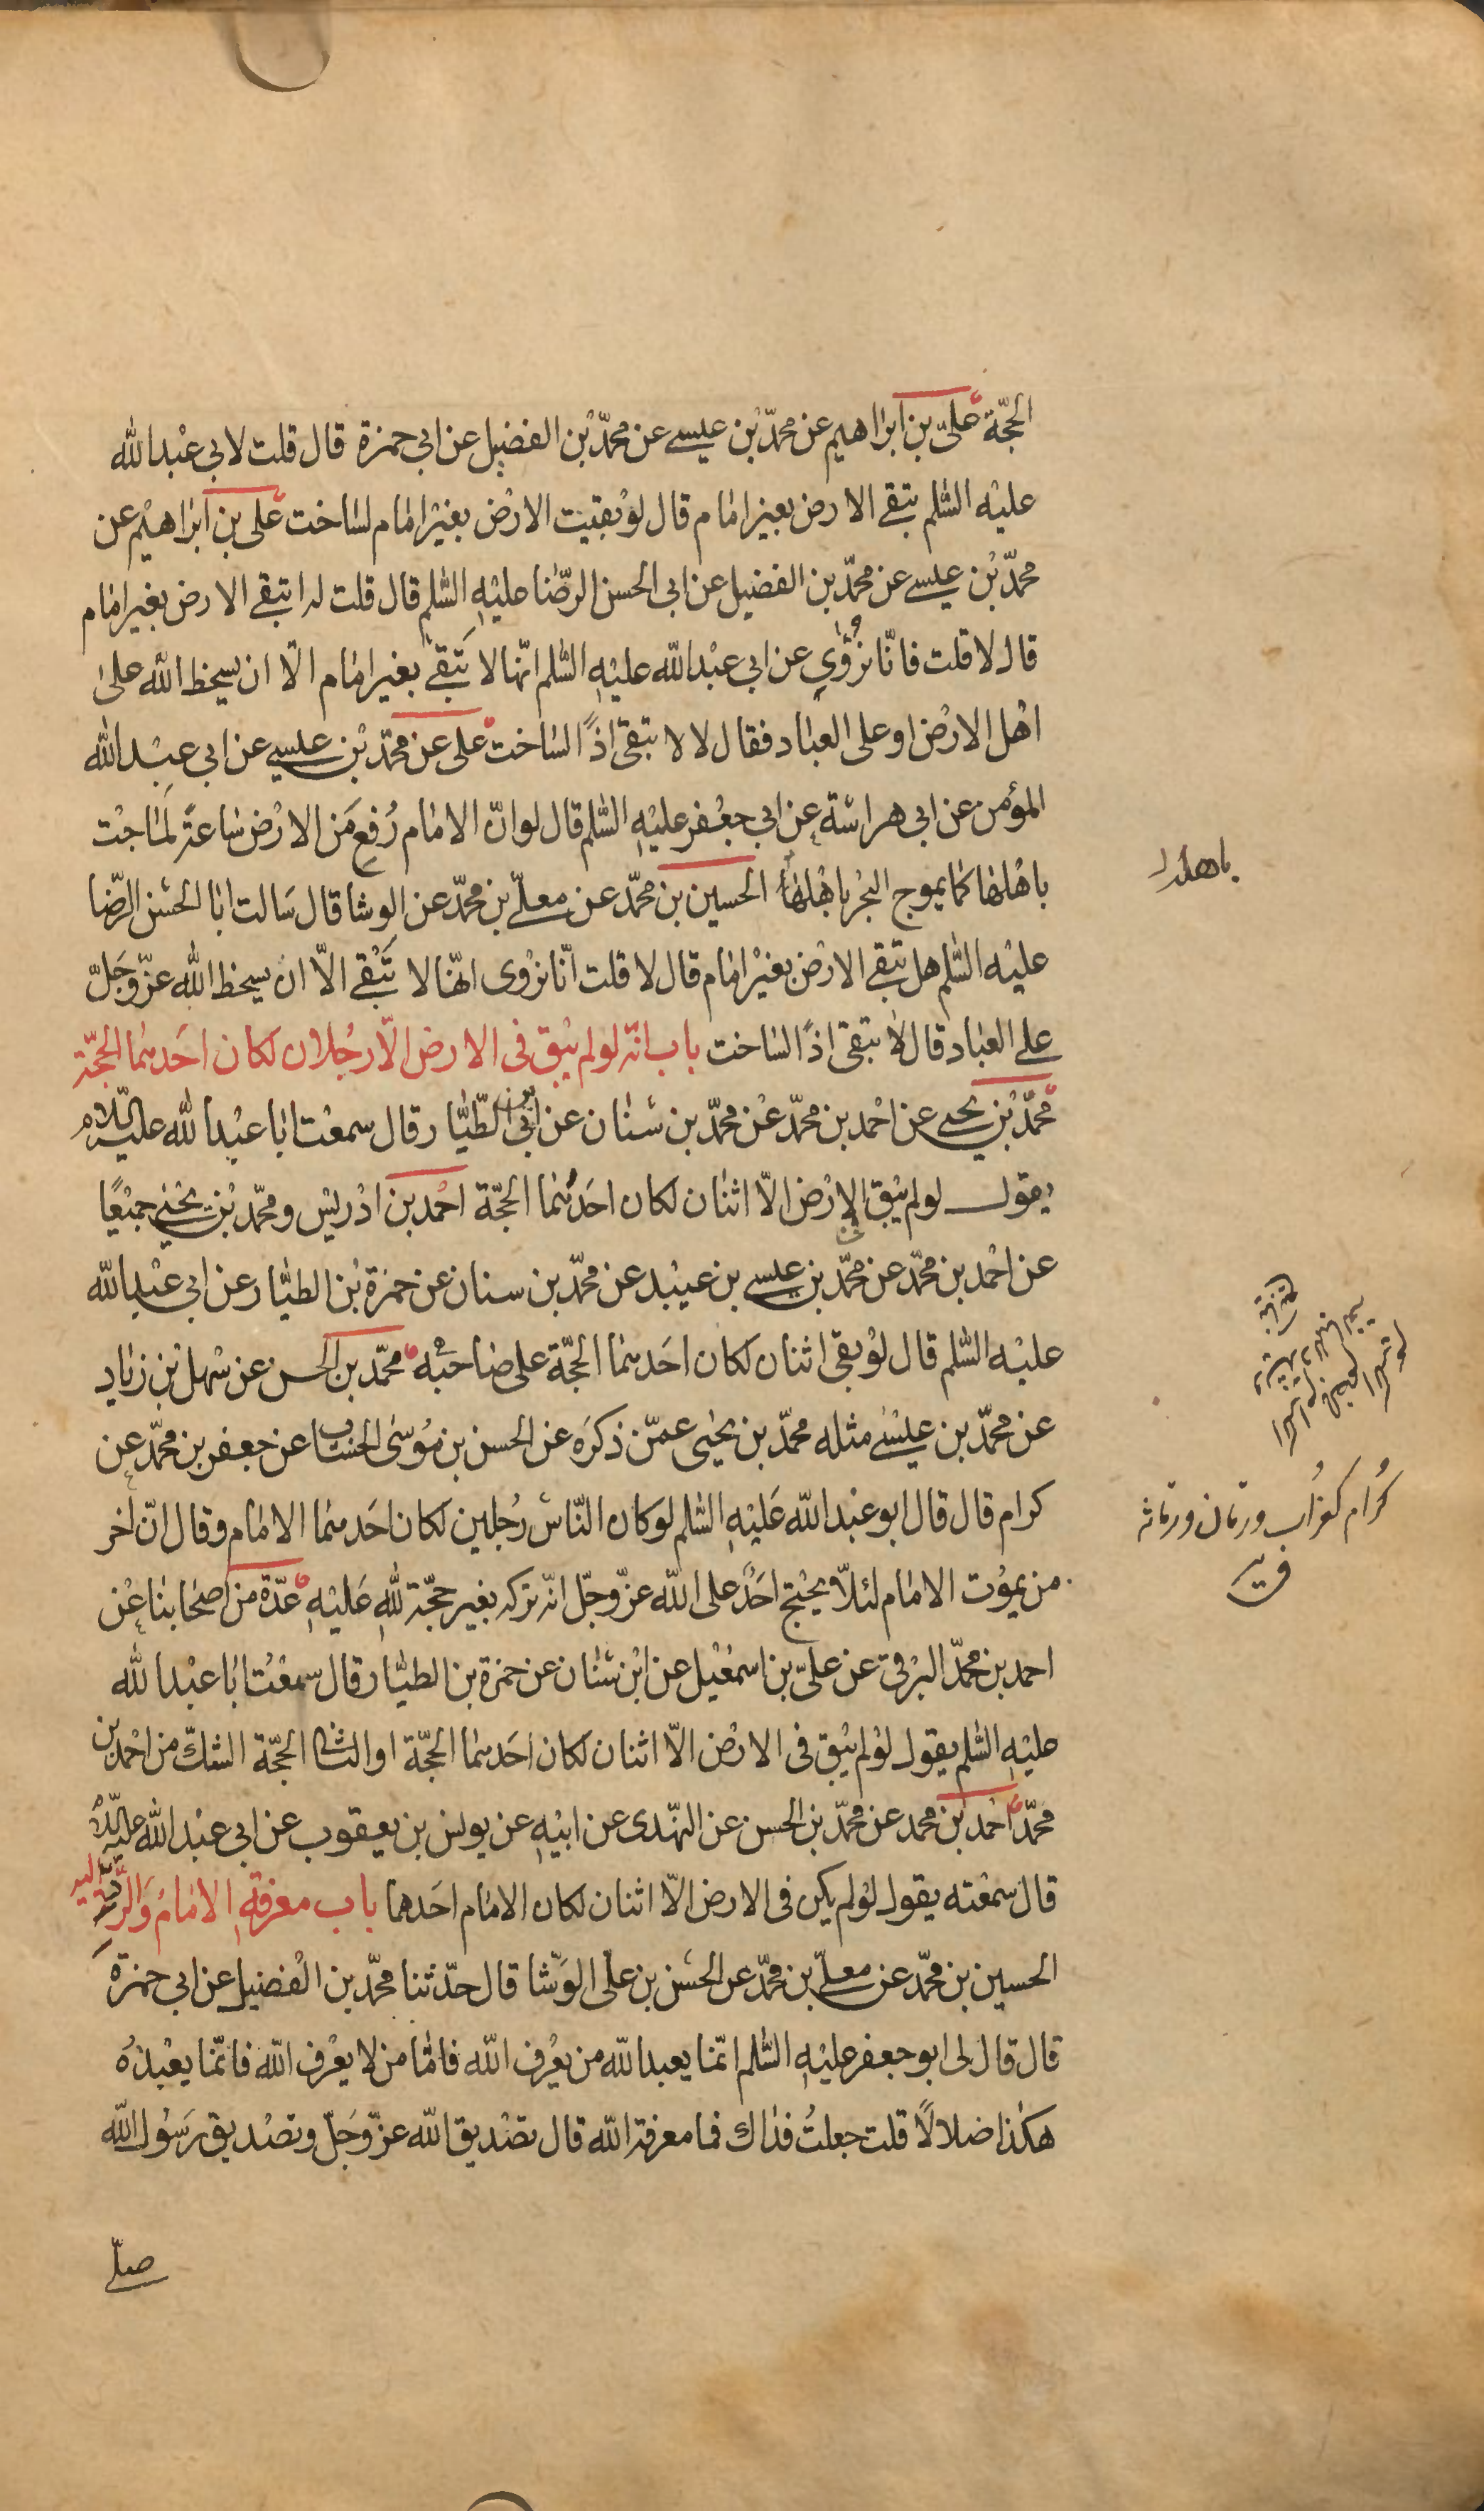 الحجّة علىّ بن ابراهيم عن محمّد بن عيسى عن محمّد بن الفضيل عن ابى حمزة قال قلت لابى عبد الله
عليه السّلم تبقى الارض بغير امام قال لو بقيت الارض بغير امام لساخت على بن ابراهيم عن
محمّد بن عيسى عن محمّد بن الفضيل عن ابى الحسن الرّضا عليه السّلم قال قلت له اتبقى الارض بغير امام
قال لا قلت فانّا نروى عن ابى عبد الله عليه السّلم انّها لا تبقى بغير امام الّا ان يسخط الله على
اهل الارض او على العباد فقال لا لا تبقى اذًا لساخت على عن محمّد بن عيسى عن ابى عبد الله
المؤمن عن ابى هراسة عن ابى جعفر عليه السّلم قال لو انّ الامام رُفع من الارض ساعة لماجت
باهلها كما يموج البحر باهلها الحسين بن محمّد عن معلّى بن محمّد عن الوشا قال سالت ابا الحسن الرّضا
عليه السّلم هل تبقى الارض بغير امام قال لا قلت انّا نروى انّها لا تبقى الّا ان يسخط الله عزّ وجلّ
على العباد قال لا تبقى اذًا لساخت باب انّه لو لم يبق فى الارض الّا رجلان لكان احدهما الحجّة
محمّد بن يحيى عن احمد بن محمّد عن محمّد بن سنان عن ابن الطّيّار قال سمعت ابا عبد الله عليه السّلام
يقول لو لم يبق فى الارض الّا اثنان لكان احدهما الحجّة احمد بن ادريس ومحمّد بن يحيى جميعًا
عن احمد بن محمّد عن محمّد بن عيسى بن عبيد عن محمّد بن سنان عن حمزة بن الطيّار عن ابى عبد الله
عليه السّلم قال لو بقى اثنان لكان احدهما الحجّة على صاحبه محمّد بن الحسن عن سهل بن زياد
عن محمّد بن عيسى مثله محمّد بن يحيى عمّن ذكره عن الحسن بن موسى الخشاب عن جعفر بن محمّد عن
كرام قال قال ابو عبد الله عليه السّلم لو كان النّاس رجلين لكان احدهما الامام وقال انّ اخر
من يموت الامام لئلّا يحتج احدٌ على الله عزّ وجلّ انّه تركه بغير حجّة لله عليه عدّة من اصحابنا عن
احمد بن محمّد البرقى عن علىّ بن اسمعيل عن ابن سنان عن حمزة بن الطيّار قال سمعت ابا عبد الله
عليه السّلم يقول لو لم يبق فى الارض الّا اثنان لكان احدهما الحجّة او الثانى الحجّة الشكّ من احمد بن
محمّد احمد بن محمد عن محمّد بن الحسن عن النّهدى عن ابيه عن يونس بن يعقوب عن ابى عبد الله عليه السّلام
قال سمعته يقول لو لم يكن فى الارض الّا اثنان لكان الامام احدهما باب معرفة الامام والرّدّ اليه
الحسين بن محمّد عن معلّى بن محمّد عن الحسن بن علّى الوشّا قال حدّثنا محمّد بن الفضيل عن ابى حمزة
قال قال لى ابو جعفر عليه السّلم انّما يعبد الله من يعرف الله فامّا من لا يعرف الله فانّما يعبده
هكذا ضلالًا قلت جعلتُ فداك فما معرفة الله قال تصديق الله عزّ وجلّ وتصديق رسول الله
صلّى
كُرام كغراب ورمان ورمانه